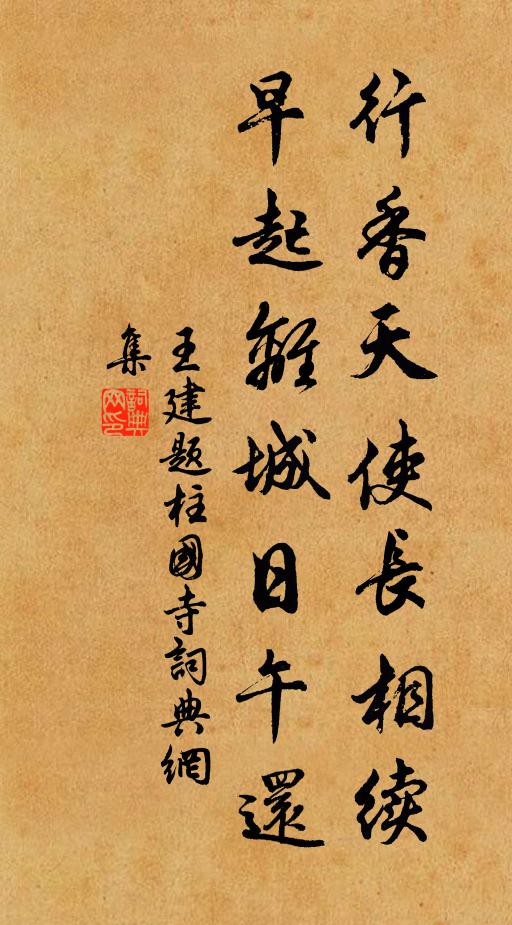 行香天使長相续
早起離城日午還
王建題柱國寺詞典網
集
詞典网印